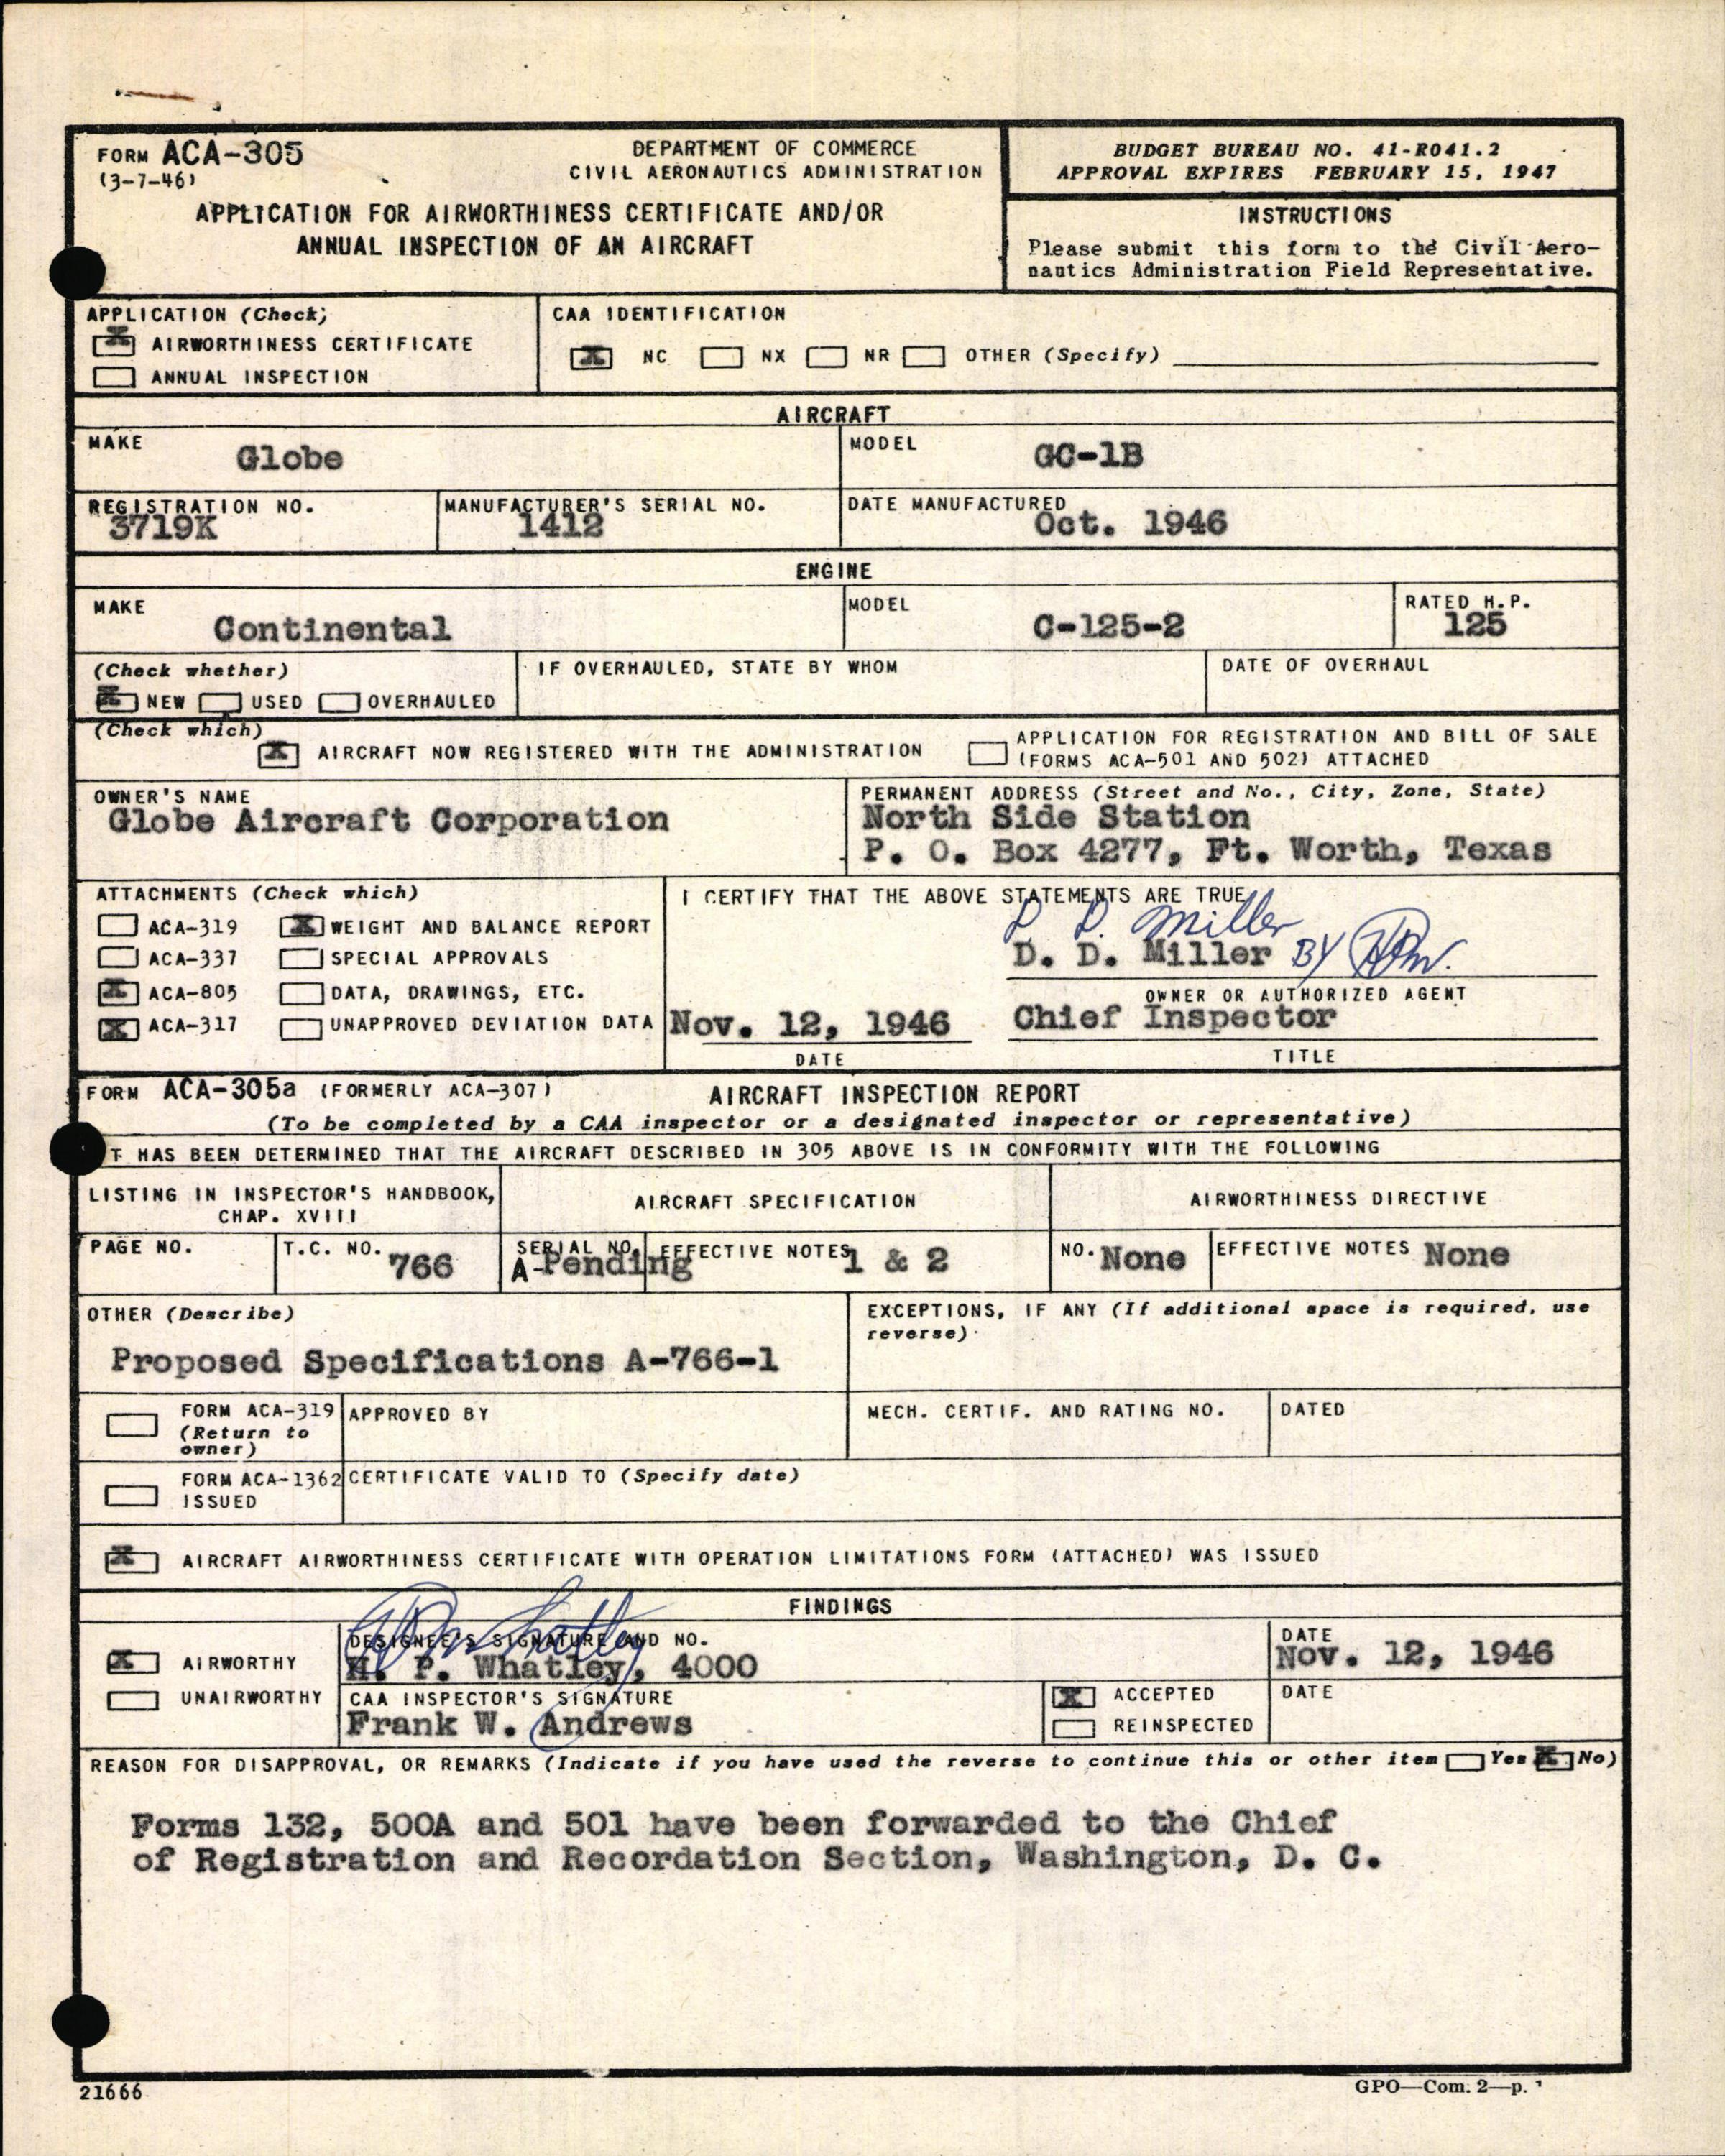 FORM ACA-305
(3-7-46)
DEPARTMENT OF COMMERCE
CIVIL AERONAUTICS ADMINISTRATION
APPLICATION FOR AIRWORTHINESS CERTIFICATE AND/OR
ANNUAL INSPECTION OF AN AIRCRAFT
BUDGET BUREAU NO. 41-R041.2
APPROVAL EXPIRES FEBRUARY 15, 1947
INSTRUCTIONS
Please submit this form to the Civil Aero-
nautics Administration Field Representative.
APPLICATION (Check)
X AIRWORTHINESS CERTIFICATE
ANNUAL INSPECTION
CAA IDENTIFICATION
X NC NX NR OTHER (Specify)
AIRCRAFT
MAKE
Globe
MODEL
GC-1B
REGISTRATION NO.
3719K
MANUFACTURER'S SERIAL NO.
1412
DATE MANUFACTURED
Oct. 1946
ENGINE
MAKE
Continental
MODEL
C-125-2
RATED H.P.
125
(Check whether)
X NEW USED OVERHAULED
IF OVERHAULED, STATE BY WHOM
DATE OF OVERHAUL
(Check which)
X AIRCRAFT NOW REGISTERED WITH THE ADMINISTRATION
APPLICATION FOR REGISTRATION AND BILL OF SALE
(FORMS ACA-501 AND 502) ATTACHED
OWNER'S NAME
Globe Aircraft Corporation
PERMANENT ADDRESS (Street and No., City, Zone, State)
North Side Station
P. O. Box 4277, Ft. Worth, Texas
ATTACHMENTS (Check which)
ACA-319 X WEIGHT AND BALANCE REPORT
ACA-337 SPECIAL APPROVALS
X ACA-805 DATA, DRAWINGS, ETC.
X ACA-317 UNAPPROVED DEVIATION DATA
I CERTIFY THAT THE ABOVE STATEMENTS ARE TRUE
D. D. Miller
D. D. Miller BY
OWNER OR AUTHORIZED AGENT
Nov. 12, 1946 Chief Inspector
DATE TITLE
FORM ACA-305a (FORMERLY ACA-307) AIRCRAFT INSPECTION REPORT
(To be completed by a CAA inspector or a designated inspector or representative)
T HAS BEEN DETERMINED THAT THE AIRCRAFT DESCRIBED IN 305 ABOVE IS IN CONFORMITY WITH THE FOLLOWING
LISTING IN INSPECTOR'S HANDBOOK,
CHAP. XVIII
AIRCRAFT SPECIFICATION
AIRWORTHINESS DIRECTIVE
PAGE NO.
T.C. NO. 766
SERIAL NO.
A-Pending
EFFECTIVE NOTES 1 & 2
NO. None
EFFECTIVE NOTES None
OTHER (Describe)
Proposed Specifications A-766-1
EXCEPTIONS, IF ANY (If additional space is required, use
reverse)
FORM ACA-319
(Return to
owner)
APPROVED BY
MECH. CERTIF. AND RATING NO.
DATED
FORM ACA-1362
ISSUED
CERTIFICATE VALID TO (Specify date)
X AIRCRAFT AIRWORTHINESS CERTIFICATE WITH OPERATION LIMITATIONS FORM (ATTACHED) WAS ISSUED
FINDINGS
X AIRWORTHY
UNAIRWORTHY
DESIGNEE'S SIGNATURE AND NO.
H. P. Whatley, 4000
DATE
Nov. 12, 1946
CAA INSPECTOR'S SIGNATURE
Frank W. Andrews
X ACCEPTED
REINSPECTED
DATE
REASON FOR DISAPPROVAL, OR REMARKS (Indicate if you have used the reverse to continue this or other item Yes X No)
Forms 132, 500A and 501 have been forwarded to the Chief
of Registration and Recordation Section, Washington, D. C.
21666
GPO—Com. 2—p.